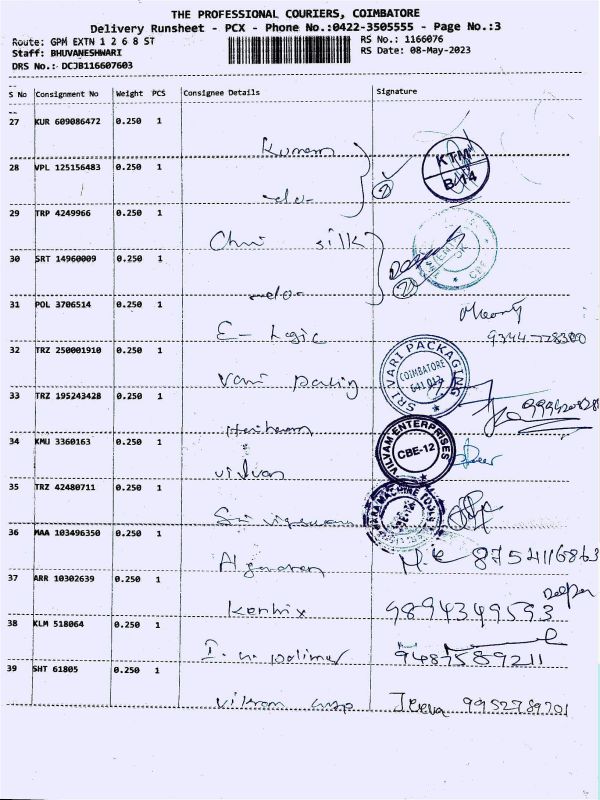 THE PROFESSIONAL COURIERS, COIMBATORE
Delivery Runsheet - PCX - Phone No.:0422-3505555 - Page No.:3
Route: GPM EXTN 1 2 6 8 ST
RS No.: 1166076
Staff: BHUVANESHWARI
RS Date: 08-May-2023
DRS No.: DCJB116607603
S No Consignment No Weight PCS Consignee Details Signature
27 KUR 609086472 0.250 1
Kumaran
KTM
B-14
28 VPL 125156483 0.250 1
-do-
2
29 TRP 4249966 0.250 1
silk
30 SRT 14960009 0.250 1
-do-
CBE
31 POL 3706514 0.250 1
E-Logic
9344728300
32 TRZ 250001910 0.250 1
Vari
SRI VARI PACKAGING
COIMBATORE
33 TRZ 195243428 0.250 1
Hariharan
34 KMJ 3360163 0.250 1
vilvam
VILVAM ENTERPRISES
CBE-12
35 TRZ 42480711 0.250 1
Sri
MACHINE TOOLS
36 MAA 103496350 0.250 1
8754116863
37 ARR 10302639 0.250 1
Kontrix
9894349593
38 KLM 518064 0.250 1
polimer
9487589211
39 SHT 61805 0.250 1
vikram
Jeeva 9952789701